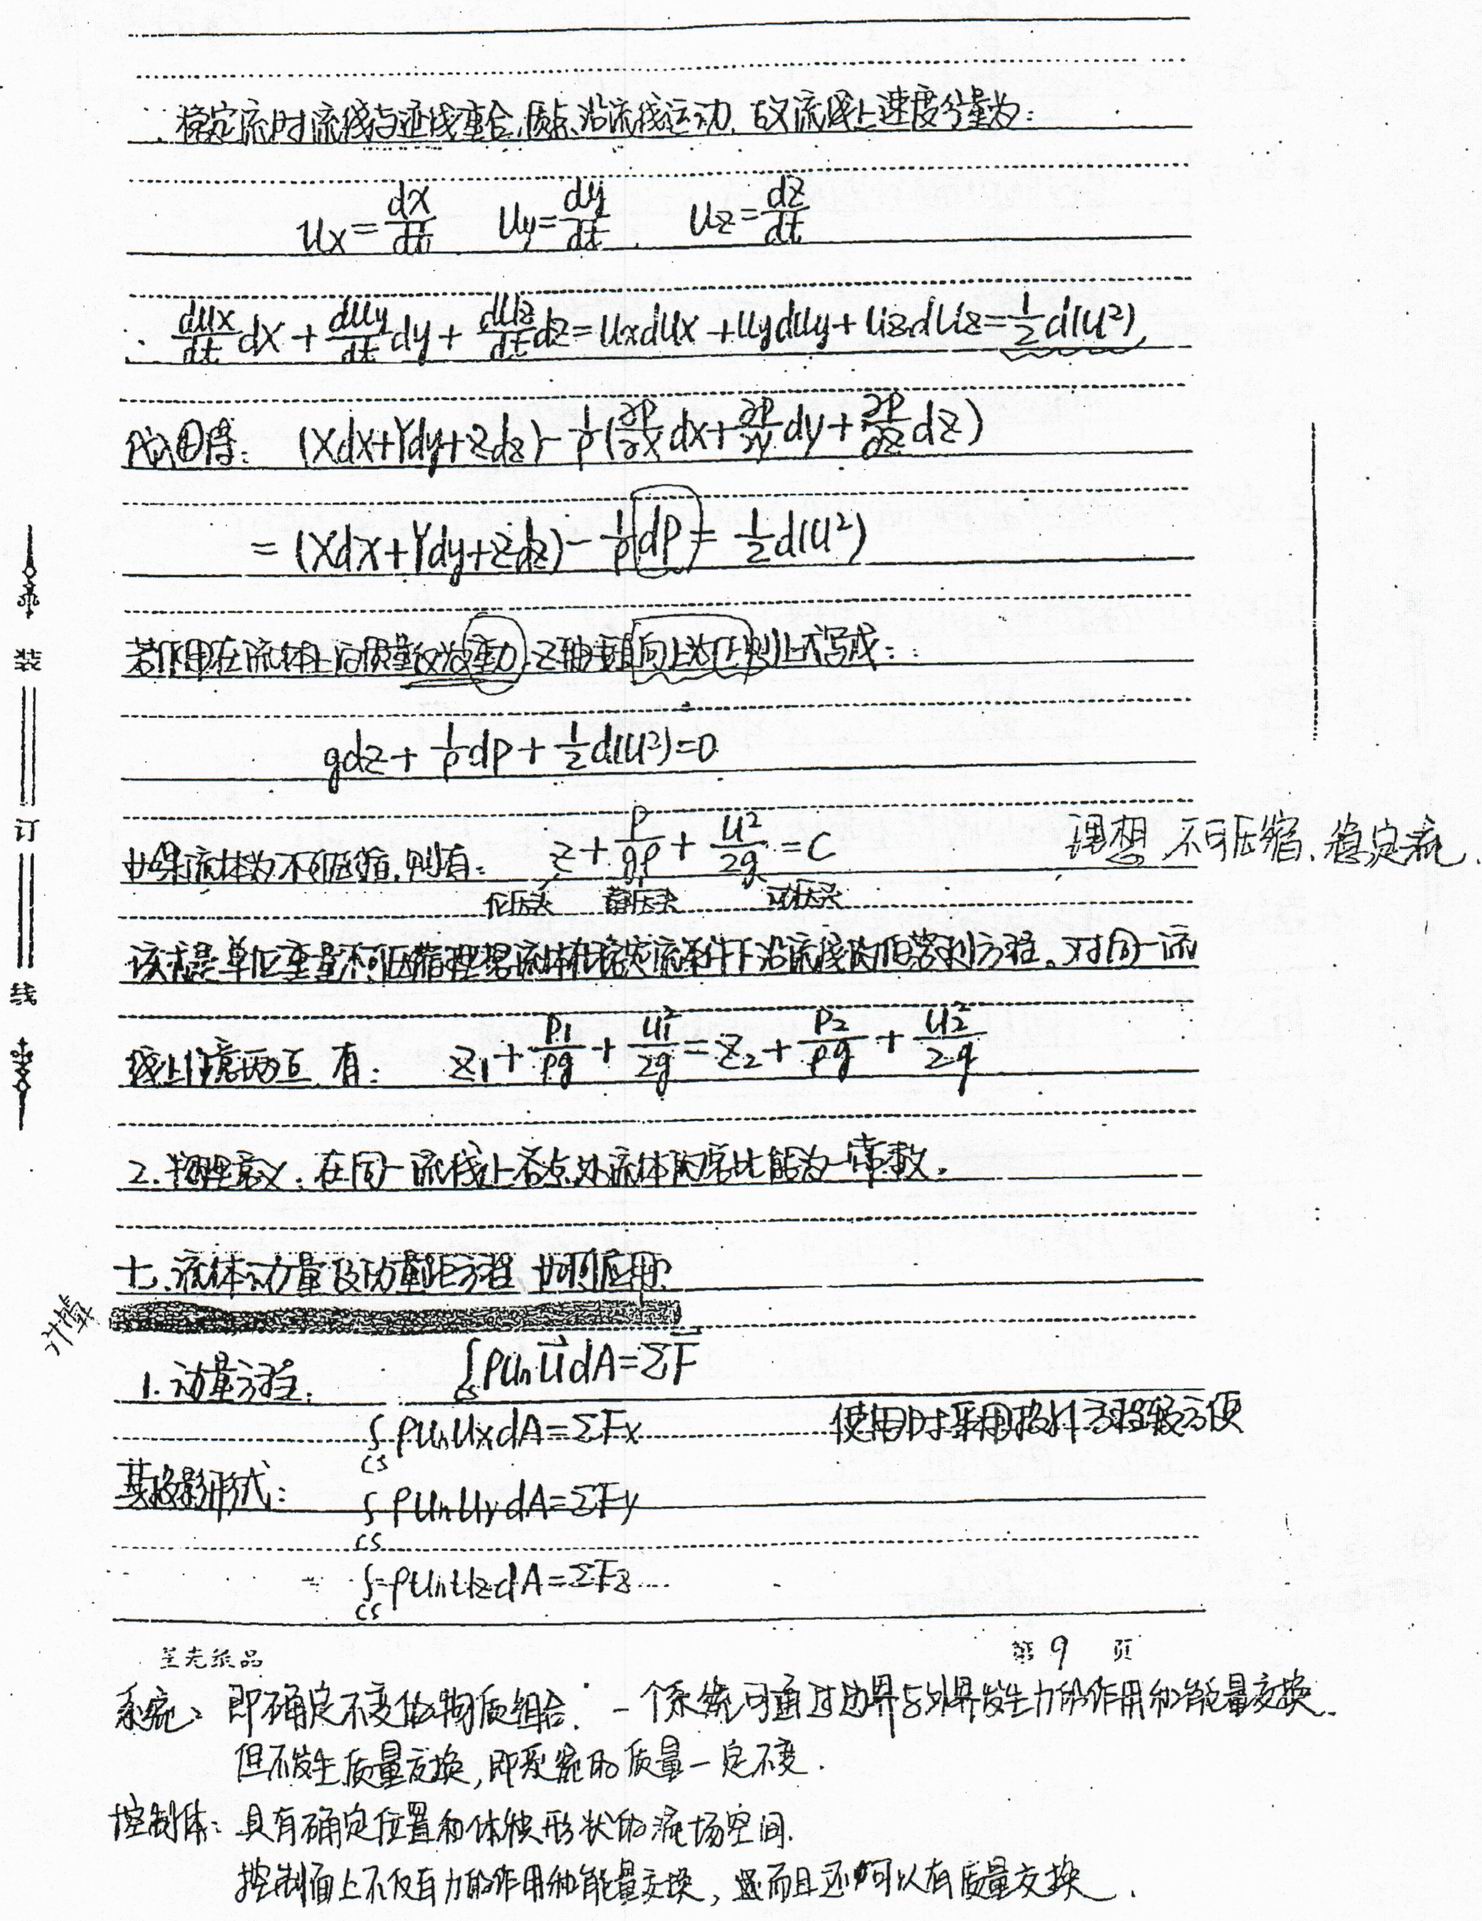 ∵ 稳定流时流线与迹线重合,质点沿流线运动,故流线上速度分量为:
Ux=dx/dt  Uy=dy/dt  Uz=dz/dt
∴ dUx/dt dx + dUy/dt dy + dUz/dt dz = UxdUx + UydUy + UzdUz = 1/2 d(U²)
代入①得: (Xdx+Ydy+Zdz) - 1/ρ (∂P/∂x dx + ∂P/∂y dy + ∂P/∂z dz)
= (Xdx+Ydy+Zdz) - 1/ρ dP = 1/2 d(U²)
若作用在流体上的质量仅为重力,Z轴垂直向上为正,则上式写成:
gdz + 1/ρ dP + 1/2 d(U²)=0
如果流体为不可压缩,则有: z + P/gρ + U²/2g = C
理想 不可压缩、稳定流.
位压头 静压头 动压头
该式是单位重量不可压缩理想流体在稳定流条件下沿流线的伯努利方程。对同一流
线上任意两点 有: z₁ + P₁/ρg + U₁²/2g = z₂ + P₂/ρg + U₂²/2g
2.物理意义:在同一流线上各点处流体的总比能为一常数.
七.流体动量及动量矩方程 如何应用?
计算
1.动量方程: ∫cs ρUn U⃗ dA=ΣF⃗
∫cs ρUnUxdA=ΣFx
使用时采用投影方程较方便
其投影形式: ∫cs ρUnUydA=ΣFy
∫cs ρUnUzdA=ΣFz
装
订
线
第 9 页
系统: 即确定不变的物质组合. 一个系统可通过边界与外界发生力的作用和能量交换.
但不发生质量交换,即系统的质量一定不变.
控制体: 具有确定位置和体积形状的流场空间.
控制面上不仅有力的作用和能量交换, 而且还可以有质量交换.